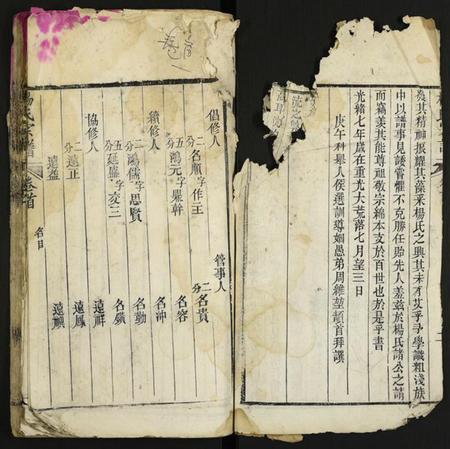 為其精神振耀其藻采楊氏之興其未有艾乎予學識粗淺族
中以譜事見諉嘗懼不克勝任貽先人羞茲於楊氏諸公之請
而竊羨其能尊祖敬宗綿本支於百世也於是乎書
光緒七年歲在重光大荒落七月望三日
庚午科舉人候選訓導姻愚弟周維堃頓首拜譔
倡修人
二分名順字作王
五分鴻元字畢幹
續修人
二分鴻儒字思賢
五分延盛字亥三
協修人
二分遠正
遠益
管事人
二分名貴
名容
名沖
名勤
名顯
遠祥
遠鳳
遠順
楊氏宗譜
卷首
名目